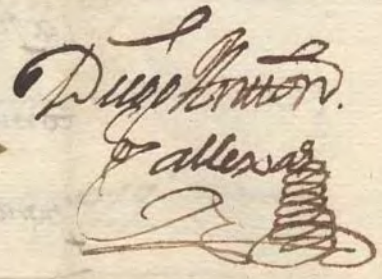 Diego Antton.
Vallexas